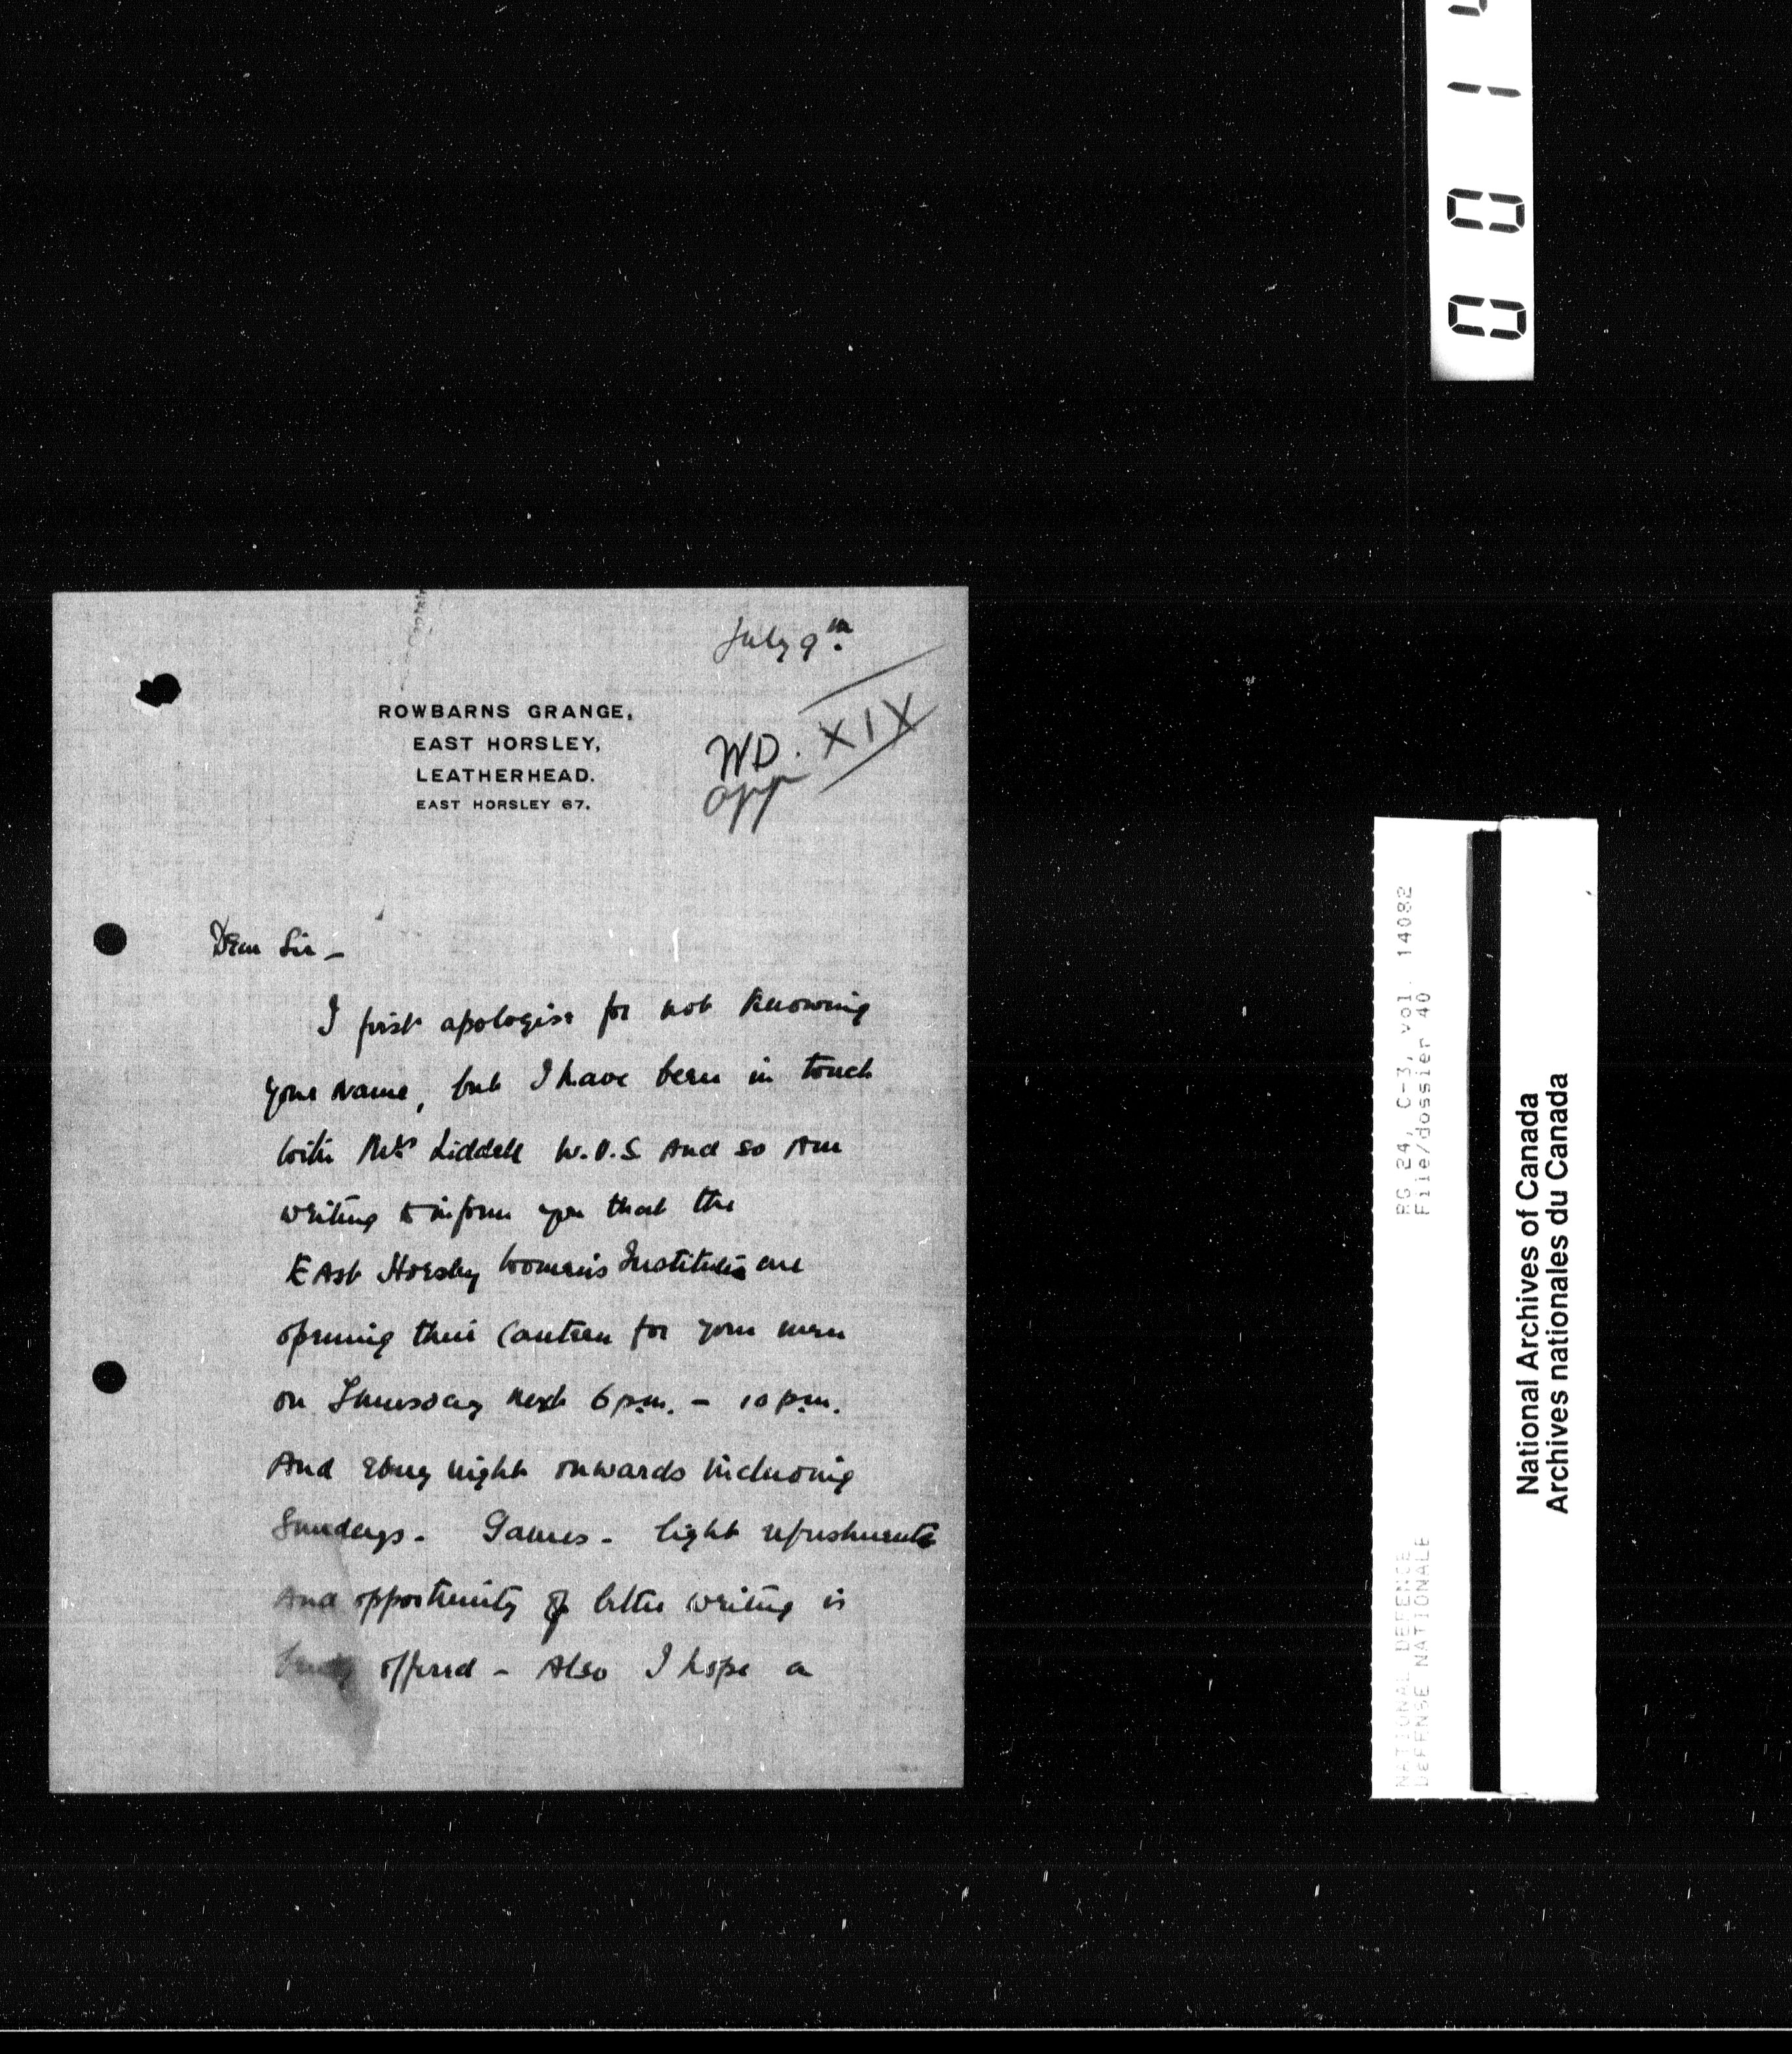 0 0 1
July 9th.
ROWBARNS GRANGE,
EAST HORSLEY,
LEATHERHEAD.
EAST HORSLEY 67.
WD. XIX
app
Dear Sir –
I first apologise for not knowing
your name, but I have been in touch
with Mrs Liddell W.V.S. and so am
writing to inform you that the
East Horsley Women's Institute are
opening their Canteen for your men
on Thursday next 6 p.m. – 10 p.m.
And every night onwards including
Sundays. Games – light refreshments
And opportunity of letter writing is
offered – Also I hope a
RG 24, C-3, vol. 14082
File/dossier 40
NATIONAL DEFENCE
DéFENSE NATIONALE
National Archives of Canada
Archives nationales du Canada